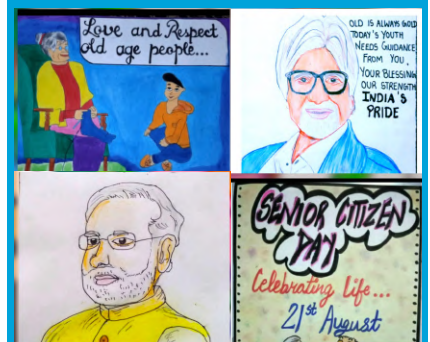 Love and Respect
old age people...
OLD IS ALWAYS GOLD
TODAY'S YOUTH
NEEDS GUIDANCE
FROM YOU.
YOUR BLESSING
OUR STRENGTH
INDIA'S
PRIDE
SENIOR CITIZEN
DAY
Celebrating Life...
21st August